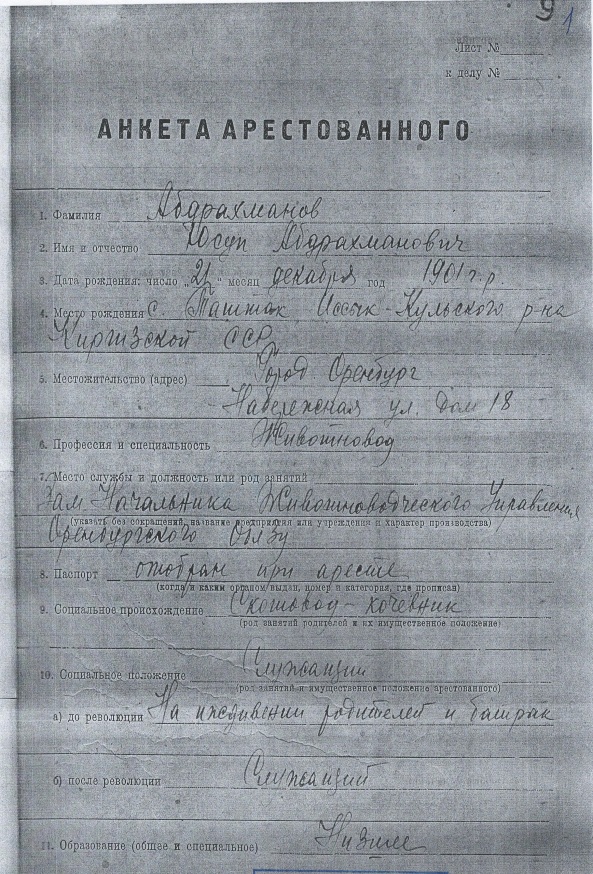 9 1
Лист №
к делу №
АНКЕТА АРЕСТОВАННОГО
1. Фамилия Абдрахманов
2. Имя и отчество Юсуп Абдрахманович
3. Дата рождения: число „ " месяц декабря год 1901 г.р.
4. Место рождения с. Таштак, Иссык-Кульского р-на
Киргизской ССР
5. Местожительство (адрес) Город Оренбург
Набережная ул. Дом 18
6. Профессия и специальность Животновод
7. Место службы и должность или род занятий
Зам. Начальника Животноводческого Управления
(указать без сокращений, название предприятия или учреждения и характер производства)
Оренбургского Облзу
8. Паспорт отобран при аресте
(когда и каким органом выдан, номер и категория, где прописан)
9. Социальное происхождение Скотовод-кочевник
(род занятий родителей и их имущественное положение)
10. Социальное положение Служащий
(род занятий и имущественное положение арестованного)
а) до революции На иждивении родителей и батрак
б) после революции Служащий
11. Образование (общее и специальное) Низшее